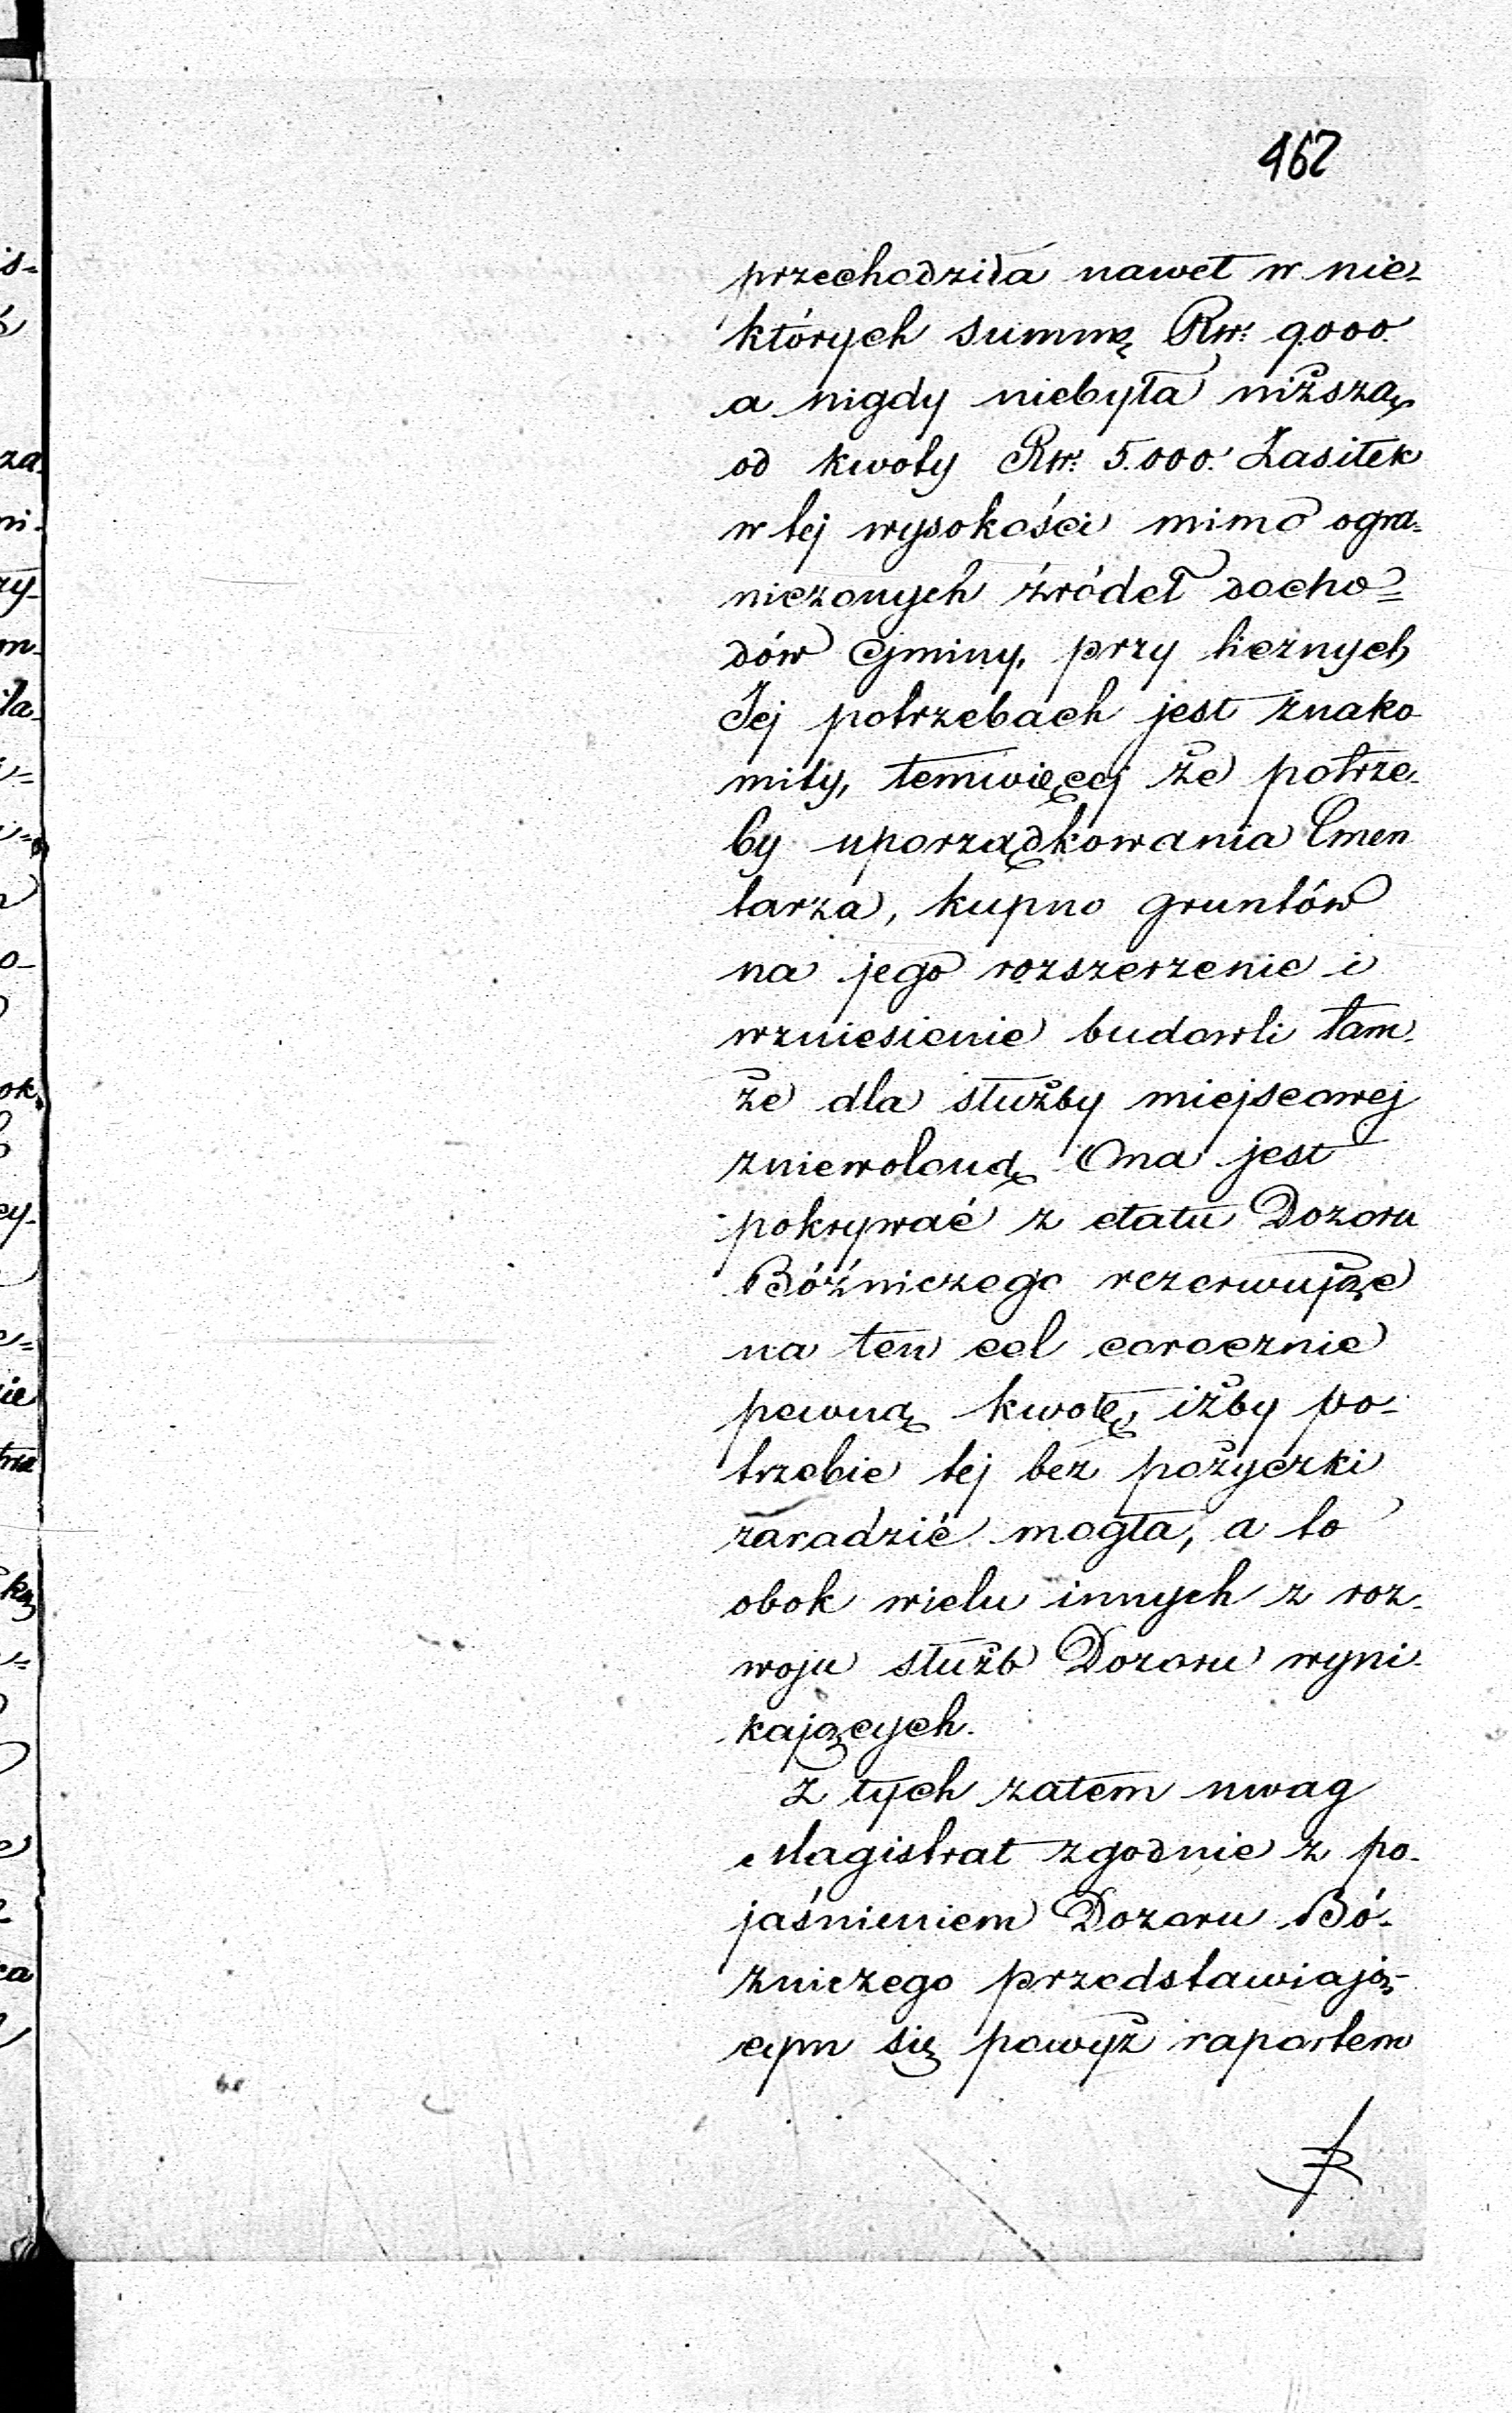 462
przechodziła nawet w nie-
których summę Rsr: 9000.
a nigdy niebyła niższą
od kwoty Rsr: 5.000. Zasiłek
w tej wysokości mimo ogra-
niczonych źródeł docho=
dów Gminy, przy licznych
Jej potrzebach jest znako
mity, temwięcej że potrze-
by uporządkowania Cmen
tarza, kupno gruntów
na jego rozszerzenie i
wzniesienie budowli tam-
że dla służby miejscowej
zniewoloną Ona jest
pokrywać z etatu Dozoru
Bóźniczego rezerwując
na ten cel corocznie
pewną kwotę, iżby po-
trzebie tej bez pożyczki
zaradzić mogła, a to
obok wielu innych z roz-
woju służb Dozoru wyni-
kających.
Z tych zatem uwag
Magistrat zgodnie z po-
jaśnieniem Dozoru Bó-
zniczego przedstawiają-
cym się powyż raportem